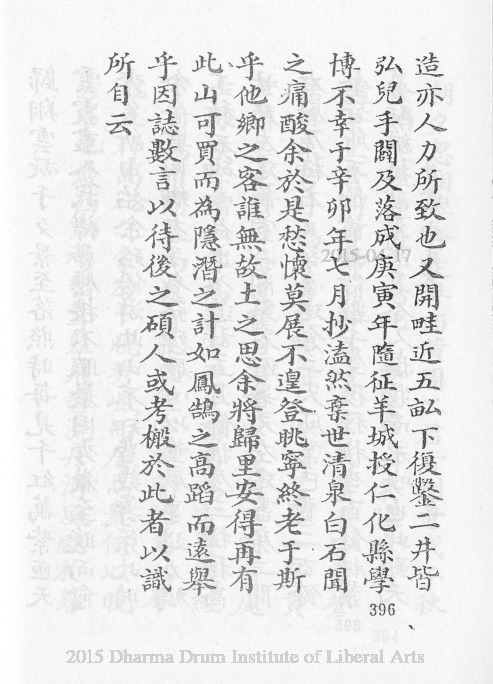 造亦人力所致也又開畦近五畝下復鑿二井皆
弘兒手闢及落成庚寅年隨征羊城授仁化縣學
博不幸于辛卯年七月抄溘然棄世清泉白石聞
之痛酸余於是愁懷莫展不遑登眺寧終老于斯
乎他鄉之客誰無故土之思余將歸里安得再有
此山可買而為隱潛之計如鳳鵠之高蹈而遠舉
乎因誌數言以待後之碩人或考槃於此者以識
所自云
396
2015 Dharma Drum Institute of Liberal Arts